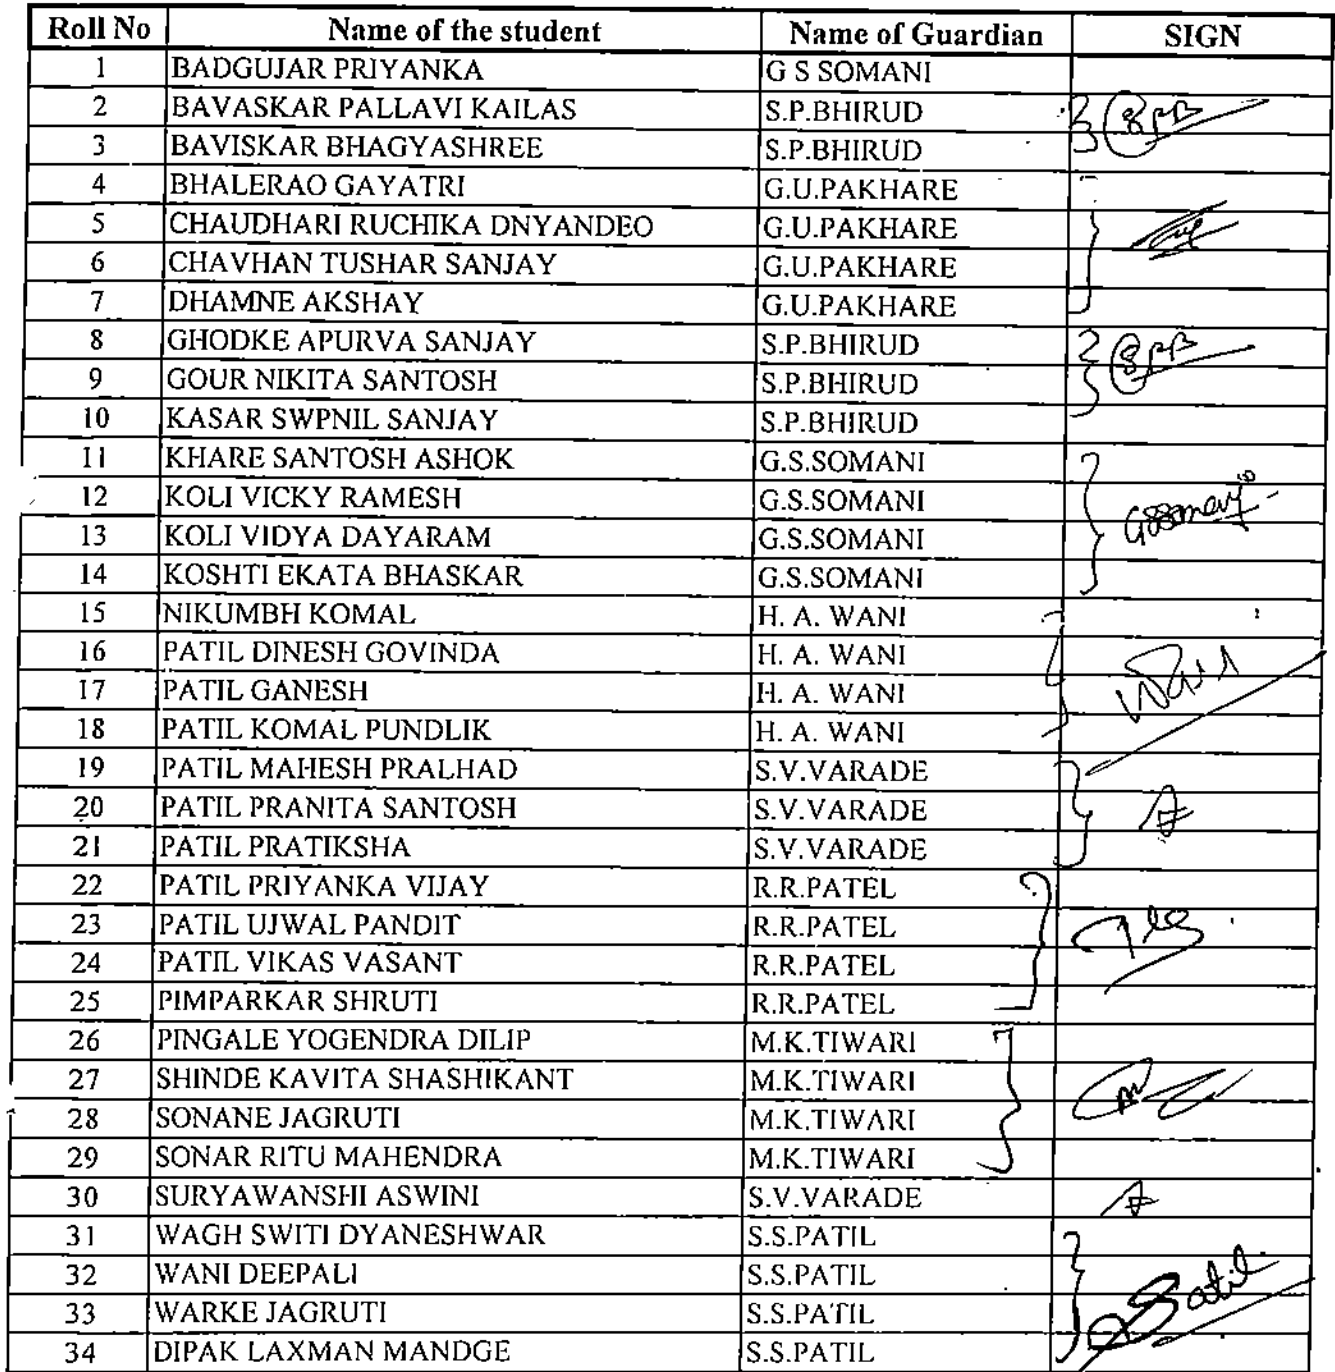 Roll No Name of the student Name of Guardian SIGN
1 BADGUJAR PRIYANKA G S SOMANI
2 BAVASKAR PALLAVI KAILAS S.P.BHIRUD
3 BAVISKAR BHAGYASHREE S.P.BHIRUD
4 BHALERAO GAYATRI G.U.PAKHARE
5 CHAUDHARI RUCHIKA DNYANDEO G.U.PAKHARE
6 CHAVHAN TUSHAR SANJAY G.U.PAKHARE
7 DHAMNE AKSHAY G.U.PAKHARE
8 GHODKE APURVA SANJAY S.P.BHIRUD
9 GOUR NIKITA SANTOSH S.P.BHIRUD
10 KASAR SWPNIL SANJAY S.P.BHIRUD
11 KHARE SANTOSH ASHOK G.S.SOMANI
12 KOLI VICKY RAMESH G.S.SOMANI
13 KOLI VIDYA DAYARAM G.S.SOMANI
14 KOSHTI EKATA BHASKAR G.S.SOMANI
15 NIKUMBH KOMAL H. A. WANI
16 PATIL DINESH GOVINDA H. A. WANI
17 PATIL GANESH H. A. WANI
18 PATIL KOMAL PUNDLIK H. A. WANI
19 PATIL MAHESH PRALHAD S.V.VARADE
20 PATIL PRANITA SANTOSH S.V.VARADE
21 PATIL PRATIKSHA S.V.VARADE
22 PATIL PRIYANKA VIJAY R.R.PATEL
23 PATIL UJWAL PANDIT R.R.PATEL
24 PATIL VIKAS VASANT R.R.PATEL
25 PIMPARKAR SHRUTI R.R.PATEL
26 PINGALE YOGENDRA DILIP M.K.TIWARI
27 SHINDE KAVITA SHASHIKANT M.K.TIWARI
28 SONANE JAGRUTI M.K.TIWARI
29 SONAR RITU MAHENDRA M.K.TIWARI
30 SURYAWANSHI ASWINI S.V.VARADE
31 WAGH SWITI DYANESHWAR S.S.PATIL
32 WANI DEEPALI S.S.PATIL
33 WARKE JAGRUTI S.S.PATIL
34 DIPAK LAXMAN MANDGE S.S.PATIL